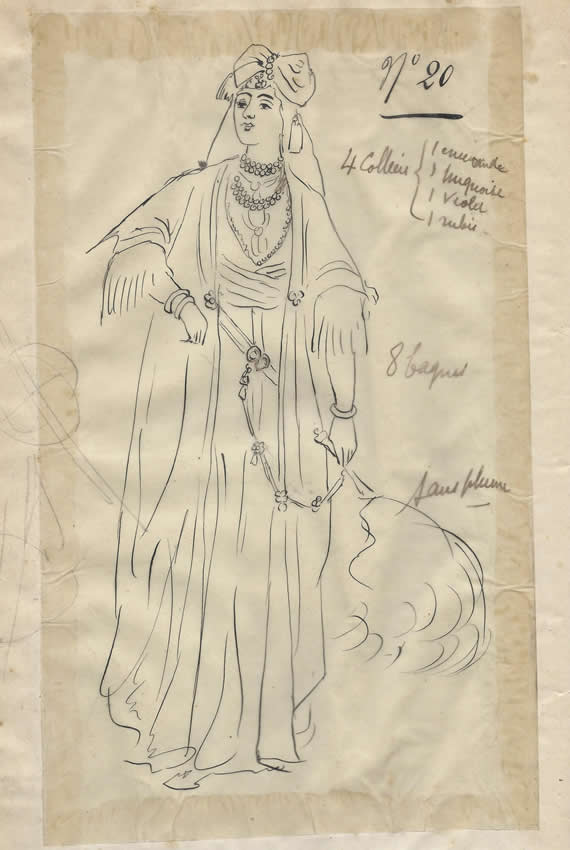 N° 20
4 Colliers { 1 émeraude
1 turquoise
1 violet
1 rubis
8 bagues
sans plume